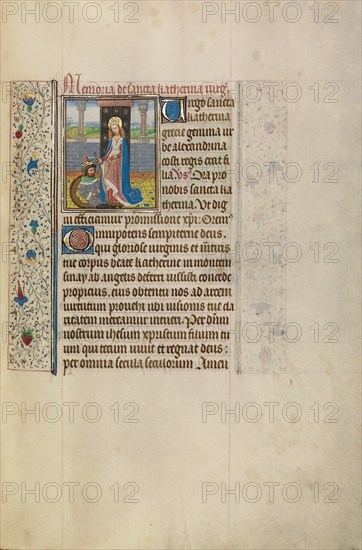 Memoria de sancta katherina virg.
Virgo sancta
katherina
grecie gemma ur
be alexandrina
costi regis erat fi
lia Vs Ora pro
nobis sancta ka
therina Ut dig
ni efficiamur promissione xpi: Orem
Omnipotens sempiterne deus,
qui gloriose virginis et martiris
tue corpus beate katherine in montem
sinay ab angelis deferri iussisti concede
propicius, eius obtentu nos ad arcem
virtutum provehi ubi visionis tue cla
ritatem mereamur intueri. Per dnm
nostrum ihesum xpristum filium tu
um qui tecum vivit et regnat deus:
per omnia secula seculorum Amen
PHOTO 12